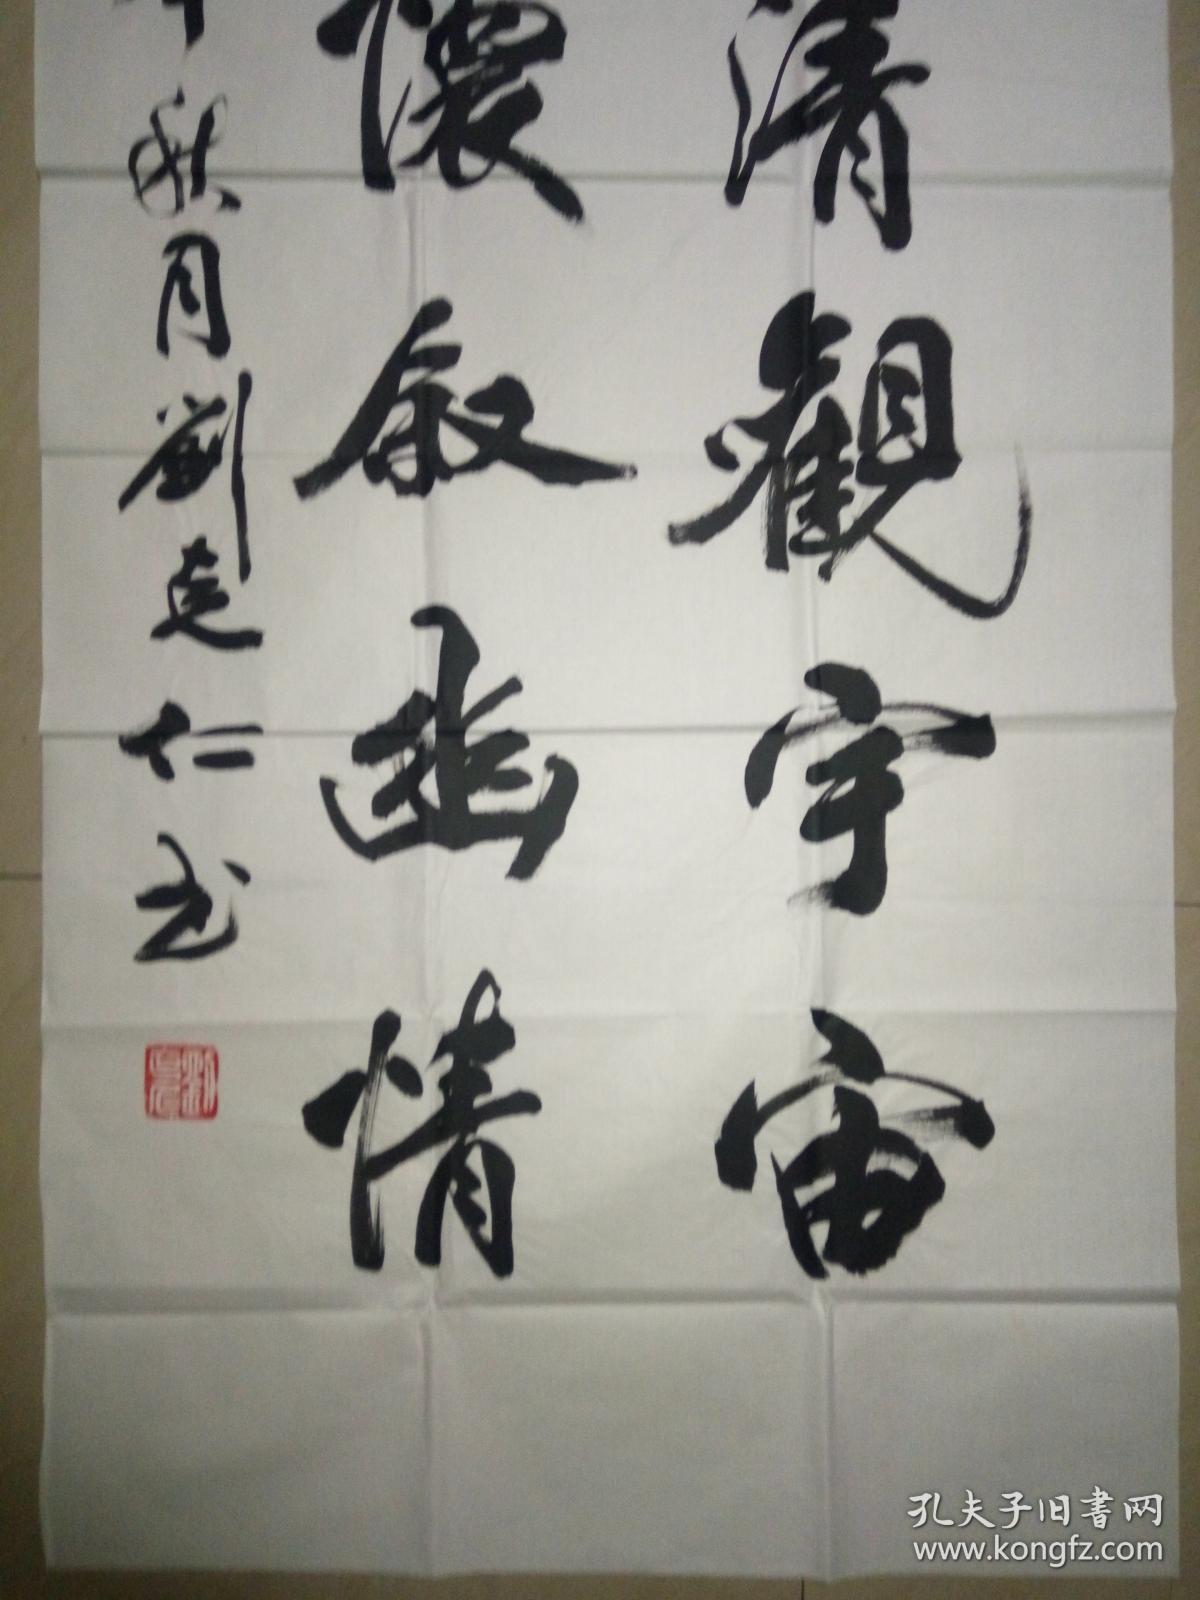 清觀宇宙
懷叙幽情
秋月劉克仁书
孔夫子旧書网
www.kongfz.com